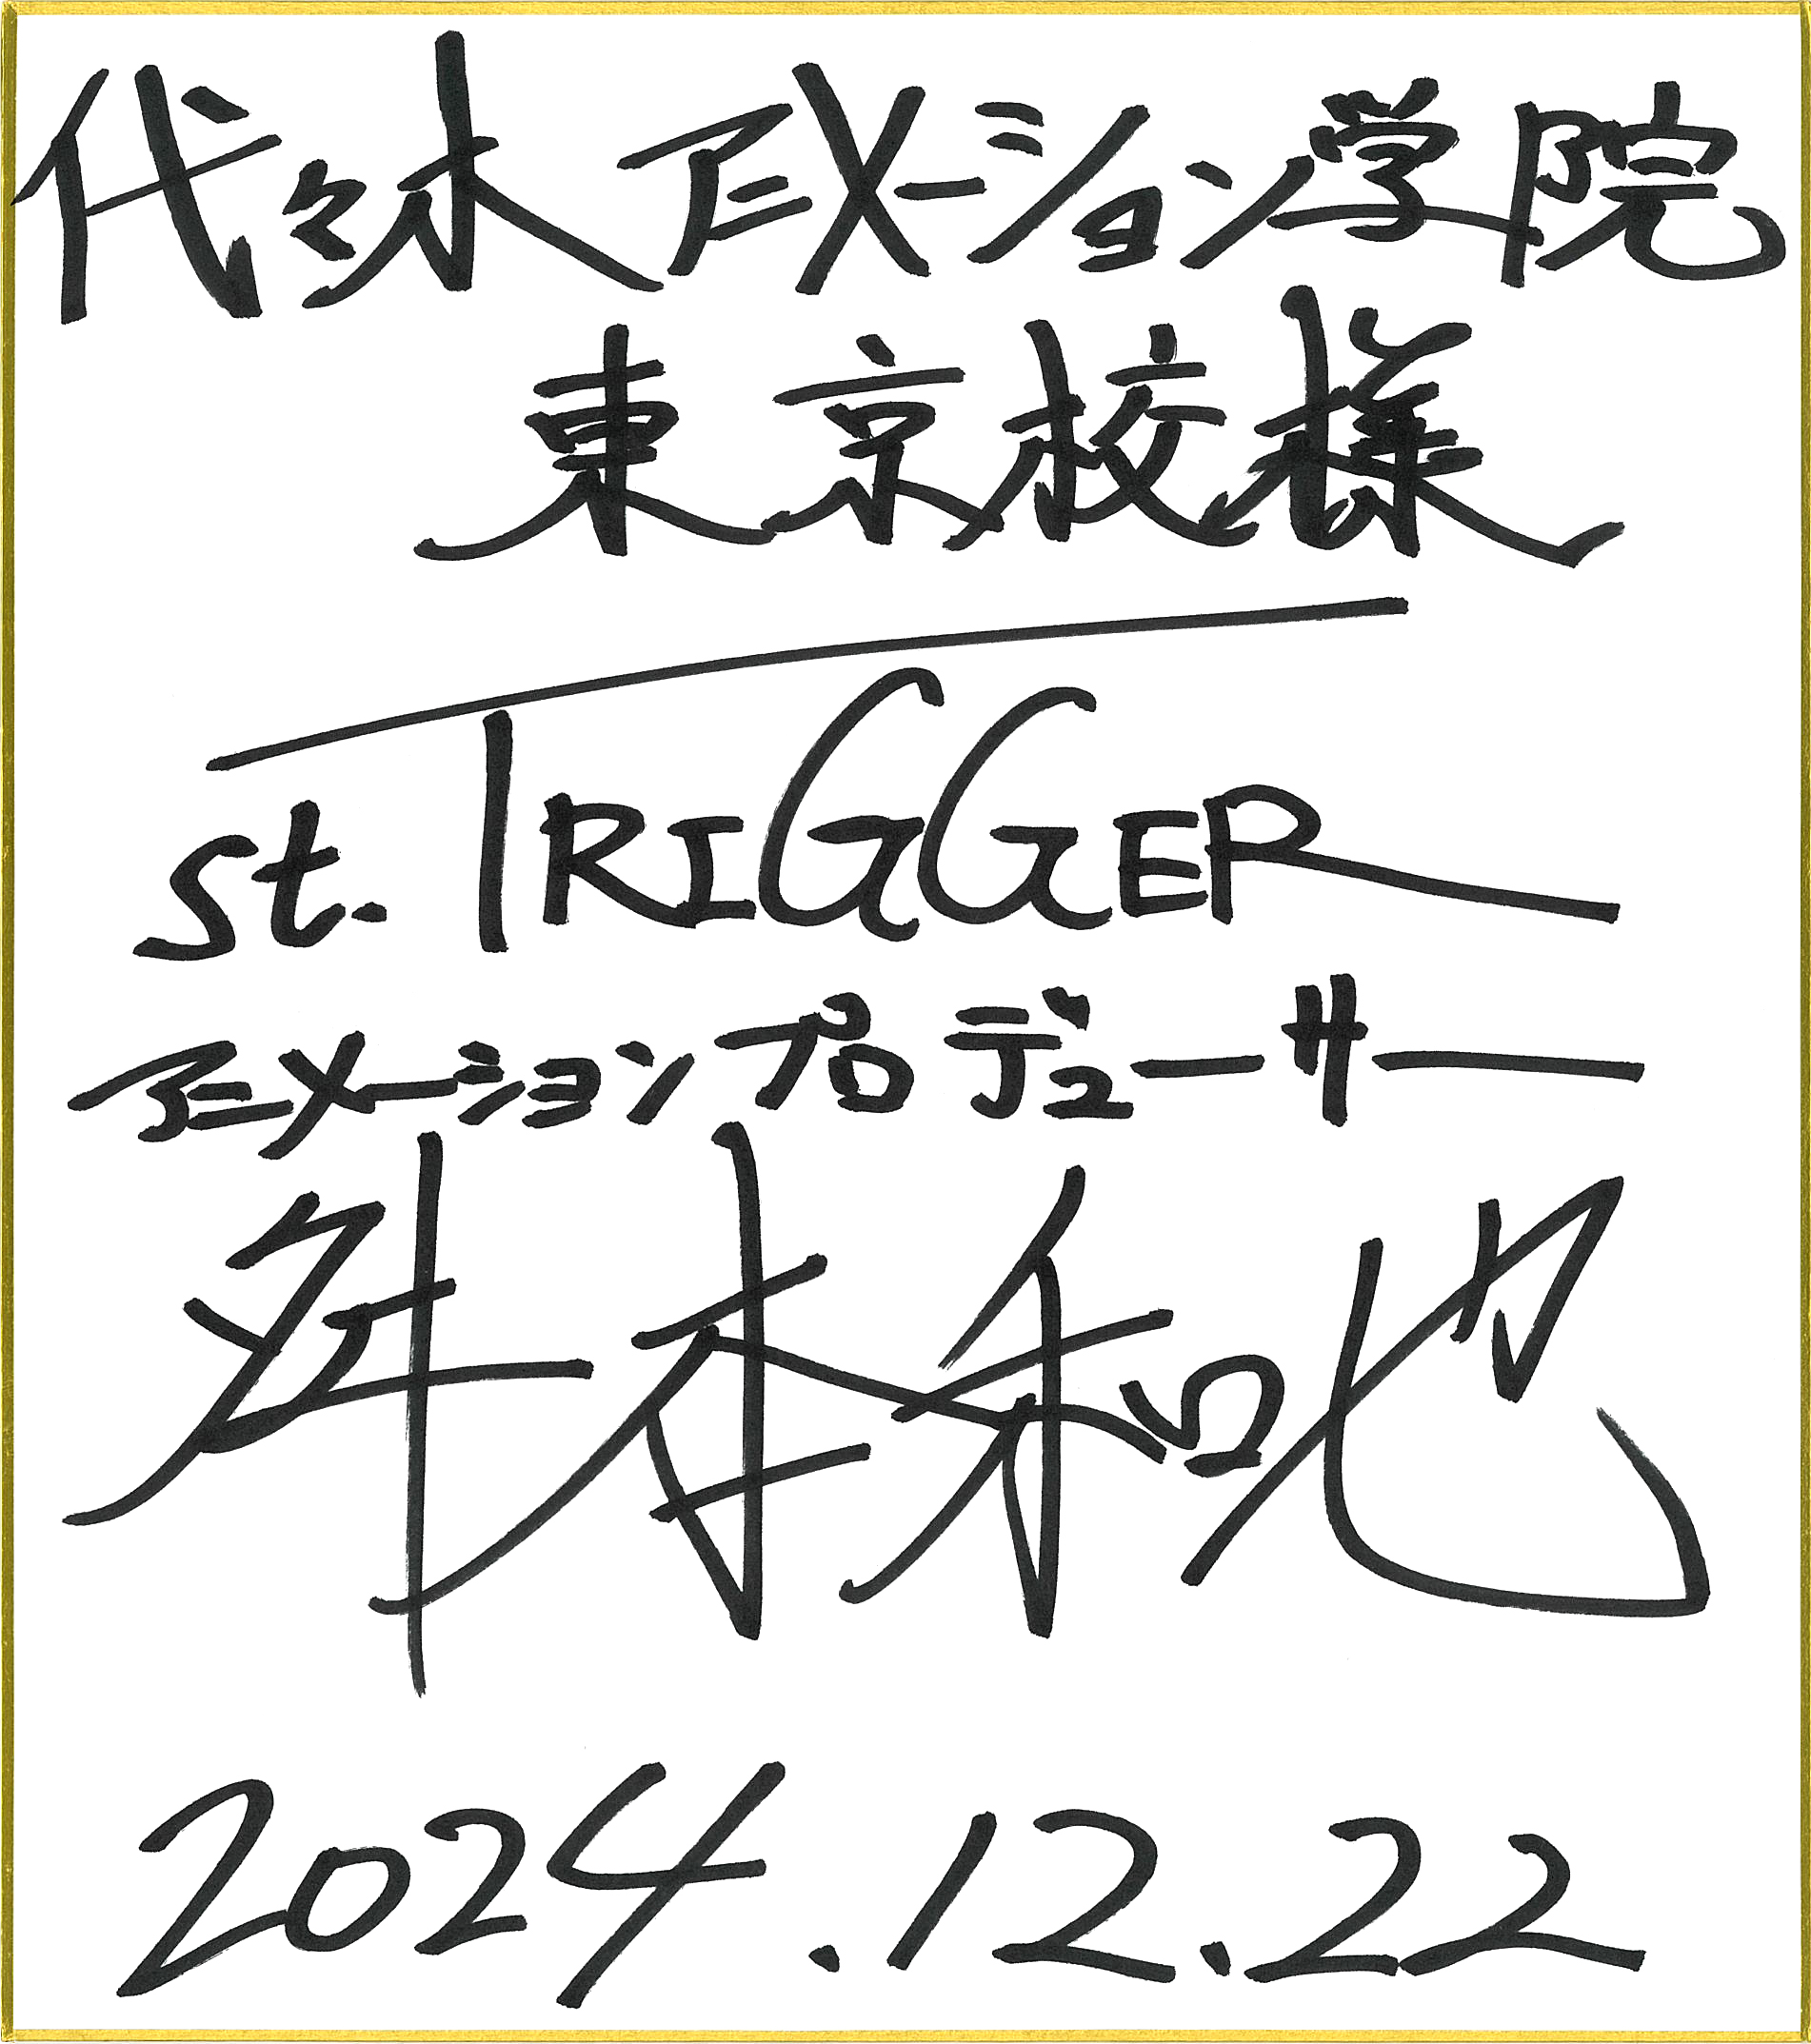 代々木アニメーション学院
東京校様
st. TRIGGER
アニメーションプロデューサー
舛本和也
2024.12.22